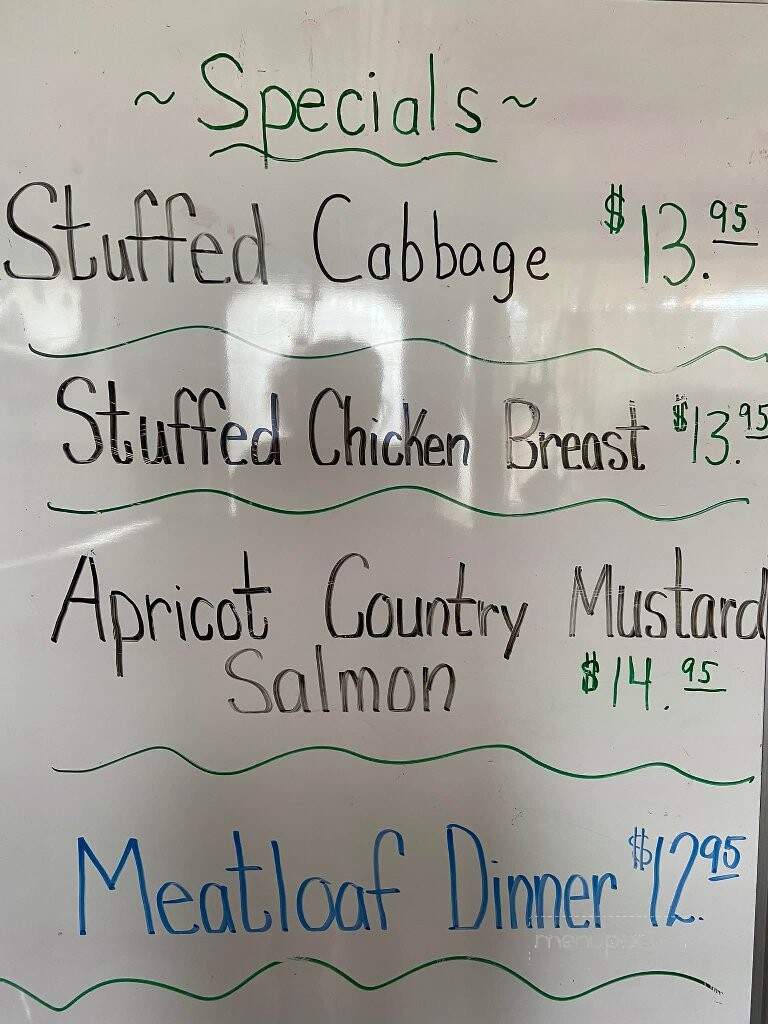 ~ Specials ~
Stuffed Cabbage $13.95
Stuffed Chicken Breast $13.95
Apricot Country Mustard
Salmon $14.95
Meatloaf Dinner $12.95